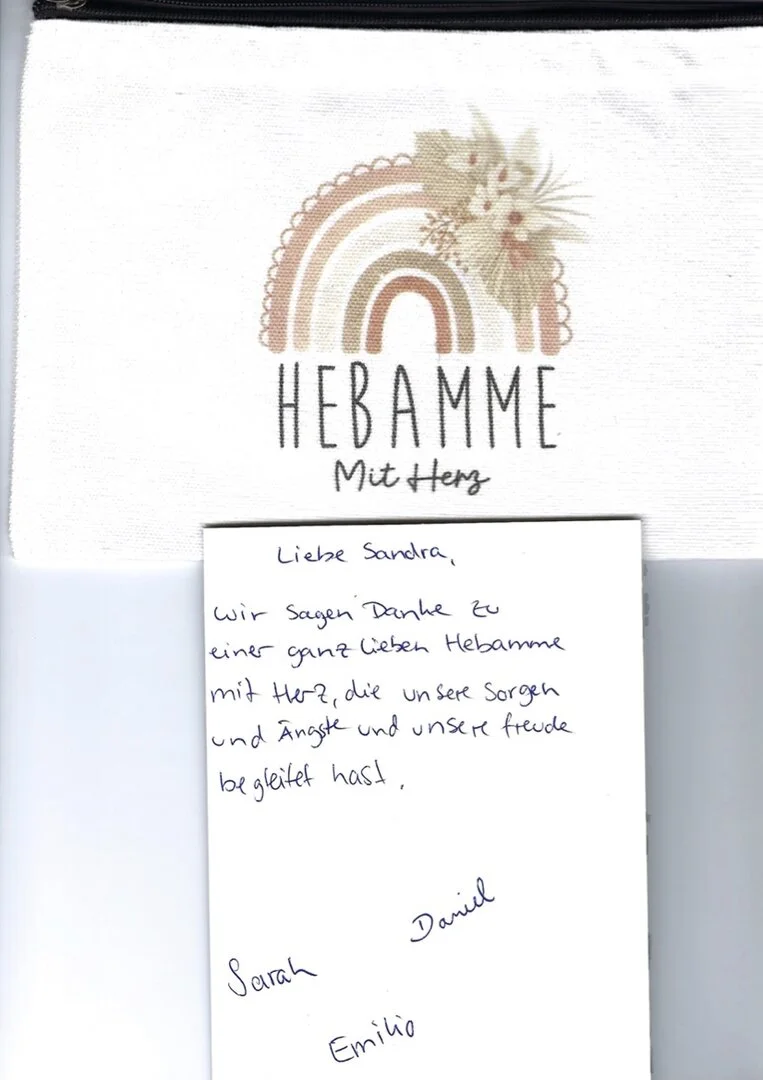 HEBAMME
Mit Herz
Liebe Sandra,
wir sagen Danke zu
einer ganz lieben Hebamme
mit Herz, die unsere Sorgen
und Ängste und unsere freude
begleitet hast.
Daniel
Sarah
Emilio